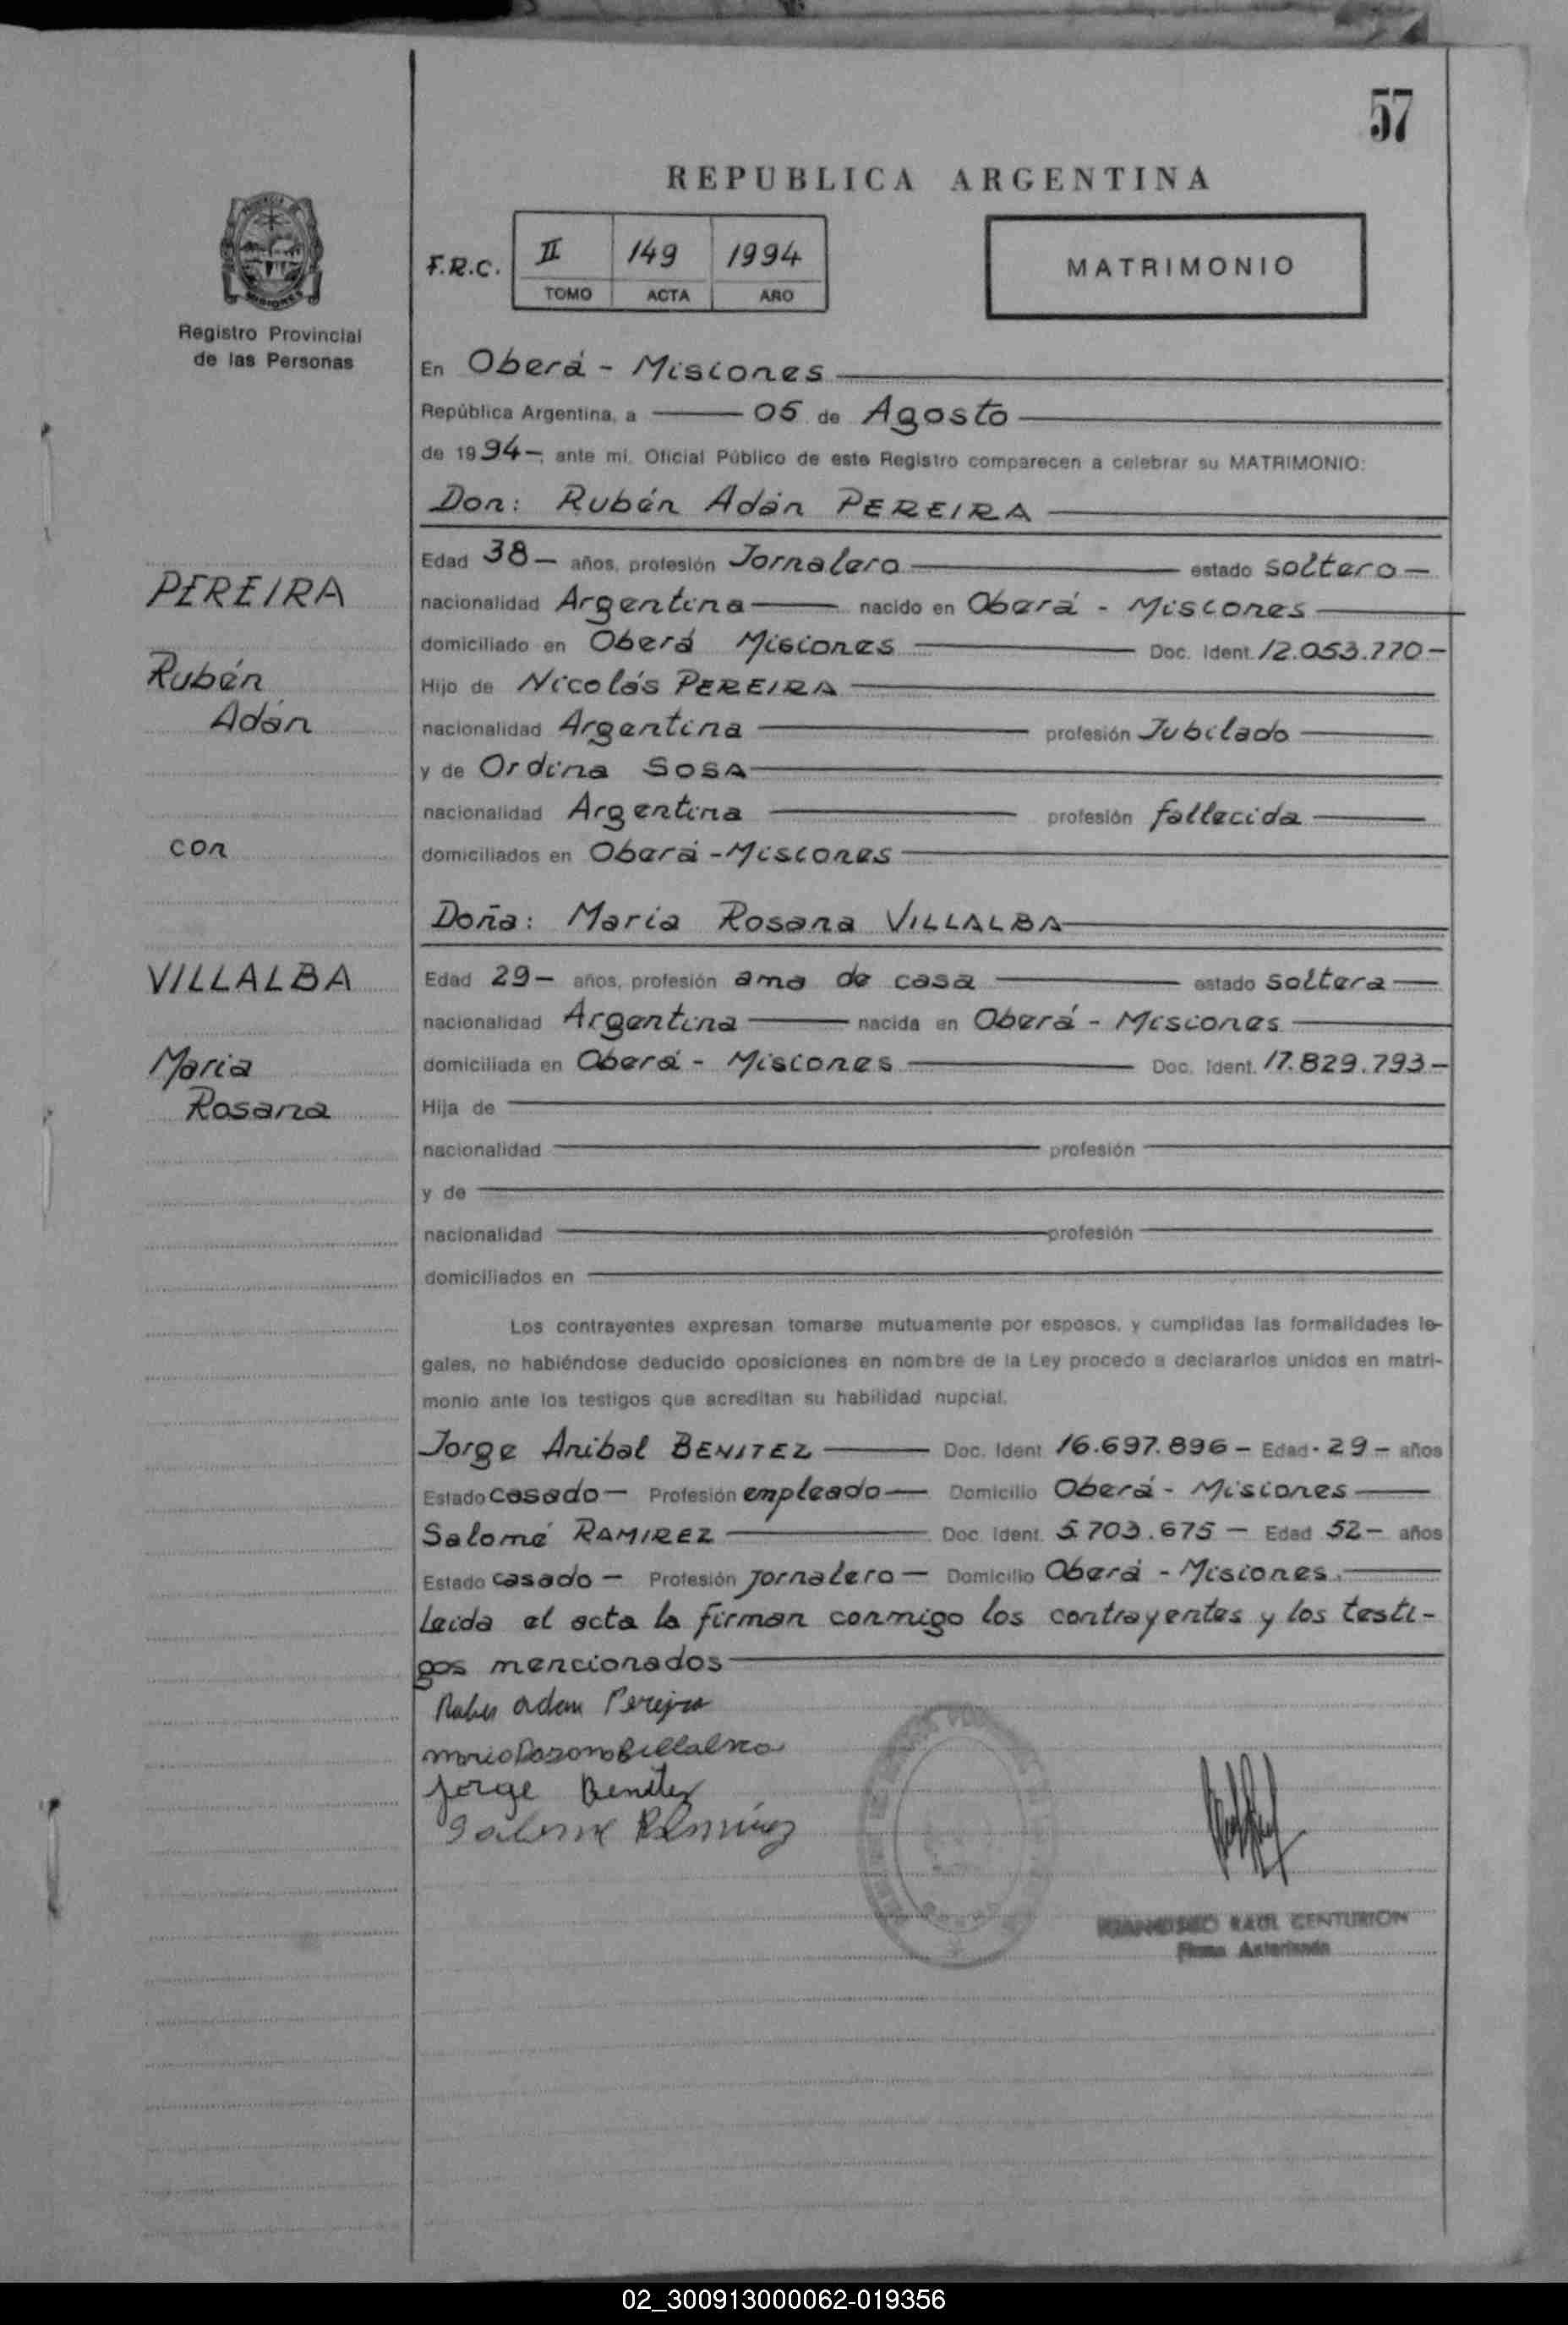 57
REPUBLICA ARGENTINA
F.R.C. II 149 1994
TOMO ACTA AÑO
MATRIMONIO
MISIONES
Registro Provincial
de las Personas
En Oberá - Misiones
República Argentina, a 05 de Agosto
de 1994-, ante mí, Oficial Público de este Registro comparecen a celebrar su MATRIMONIO:
Don: Rubén Adán PEREIRA
Edad 38- años, profesión Jornalero estado soltero-
nacionalidad Argentina nacido en Oberá - Misiones
domiciliado en Oberá Misiones Doc. Ident. 12.053.770-
Hijo de Nicolás PEREIRA
nacionalidad Argentina profesión Jubilado
y de Ordina SOSA
nacionalidad Argentina profesión fallecida
domiciliados en Oberá - Misiones
PEREIRA
Rubén
Adán
con
VILLALBA
Maria
Rosana
Doña: Maria Rosana VILLALBA
Edad 29- años, profesión ama de casa estado soltera
nacionalidad Argentina nacida en Oberá - Misiones
domiciliada en Oberá - Misiones Doc. Ident. 17.829.793-
Hija de
nacionalidad profesión
y de
nacionalidad profesión
domiciliados en
Los contrayentes expresan tomarse mutuamente por esposos, y cumplidas las formalidades le-
gales, no habiéndose deducido oposiciones en nombre de la Ley procedo a declararlos unidos en matri-
monio ante los testigos que acreditan su habilidad nupcial.
Jorge Anibal BENITEZ Doc. Ident 16.697.896- Edad - 29- años
Estado casado- Profesión empleado- Domicilio Oberá - Misiones
Salomé RAMIREZ Doc. Ident. 5.703.675- Edad 52- años
Estado casado- Profesión jornalero- Domicilio Oberá - Misiones.
Leida el acta la firman conmigo los contrayentes y los testi-
gos mencionados
Adan Pereira
Jorge Benitez
Ramirez
RAUL CENTURION
Firma Autorizada
02_300913000062-019356